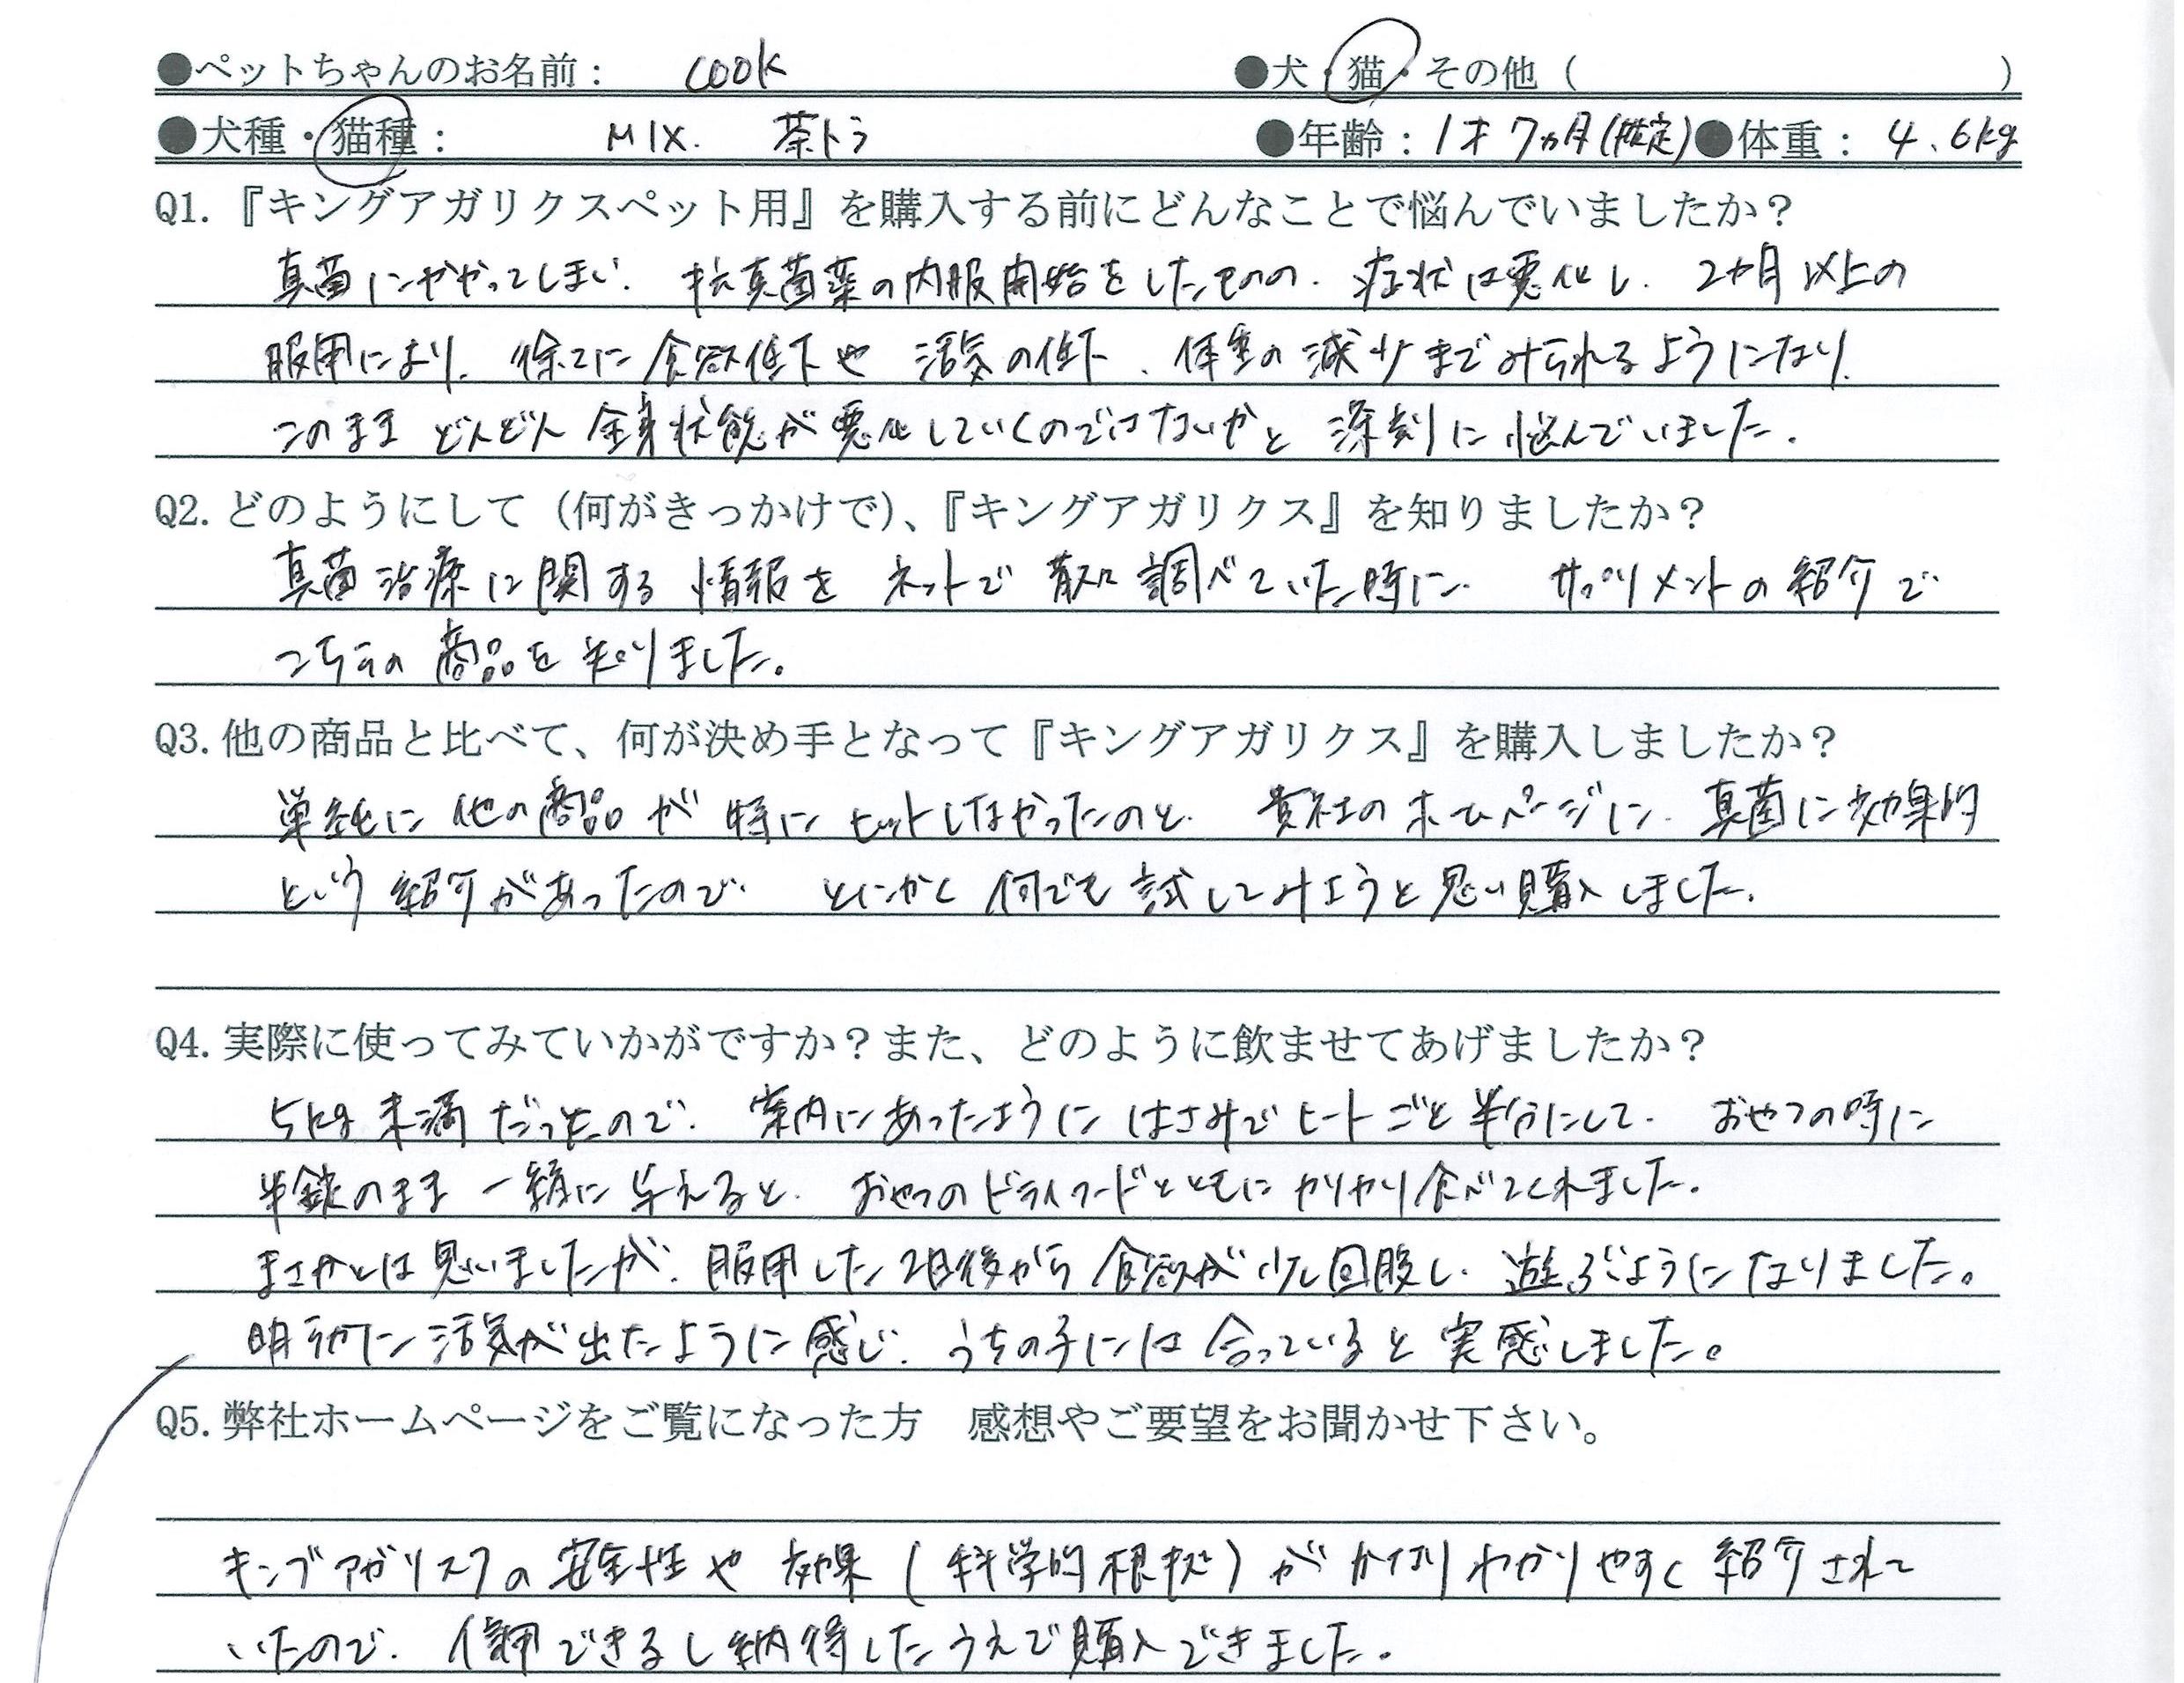 ●ペットちゃんのお名前： cook ●犬・猫・その他（ ）
●犬種・猫種： MIX. 茶トラ ●年齢：1才7ヵ月(推定)●体重：4.6kg
Q1.『キングアガリクスペット用』を購入する前にどんなことで悩んでいましたか？
真菌にかかってしまい、抗真菌薬の内服開始をしたものの、症状は悪化し、2ヶ月以上の
服用により、徐々に食欲低下や活気の低下、体重の減少までみられるようになり、
このままどんどん全身状態が悪化していくのではないかと深刻に悩んでいました。
Q2.どのようにして（何がきっかけで）、『キングアガリクス』を知りましたか？
真菌治療に関する情報をネットで散々調べていた時に、サプリメントの紹介で
こちらの商品を知りました。
Q3.他の商品と比べて、何が決め手となって『キングアガリクス』を購入しましたか？
単純に他の商品が特にヒットしなかったのと、貴社のホームページに、真菌に効果的
という紹介があったので、とにかく何でも試してみようと思い購入しました。
Q4.実際に使ってみていかがですか？また、どのように飲ませてあげましたか？
5kg未満だったので、案内にあったようにはさみでヒートごと半分にして、おやつの時に
半錠のまま一緒に与えると、おやつのドライフードとともにカリカリ食べてくれました。
まさかとは思いましたが、服用した2日後から食欲が少し回復し、遊ぶようになりました。
明らかに活気が出たように感じ、うちの子には合っていると実感しました。
Q5.弊社ホームページをご覧になった方　感想やご要望をお聞かせ下さい。
キングアガリスクの安全性や効果（科学的根拠）がかなりわかりやすく紹介されて
いたので、信用できるし納得したうえで購入できました。